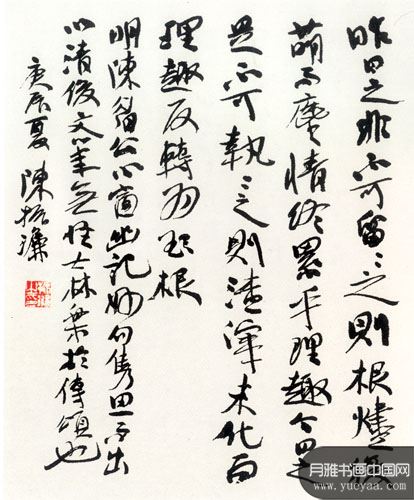 昨日之非不可留〻之則根燼復
萌而塵情終累乎理趣今日之
是不可執〻之則渣滓未化而
理趣反轉為欲根
明陳眉公小窗幽記妙句雋思而出
以清俊文筆無怪士林樂於傳頌也
庚辰夏 陳振濂
月雅书画中国网
www.yueyaa.com